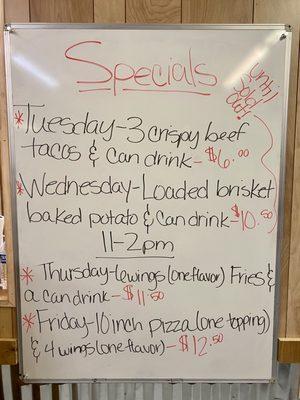 Specials
* Tuesday-3 crispy beef
tacos & can drink-$6.00
* Wednesday-Loaded brisket
baked potato & can drink-$10.50
11-2pm
* Thursday-6 wings (one flavor) Fries &
a can drink-$11.50
* Friday-10 inch pizza (one topping)
& 4 wings (one flavor)-$12.50